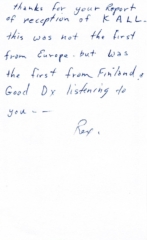 thanks for your Report
of reception of K A L L.
this was not the first
from Europe. but was
the first from Finland.
Good Dx listening to
you --
Rex.